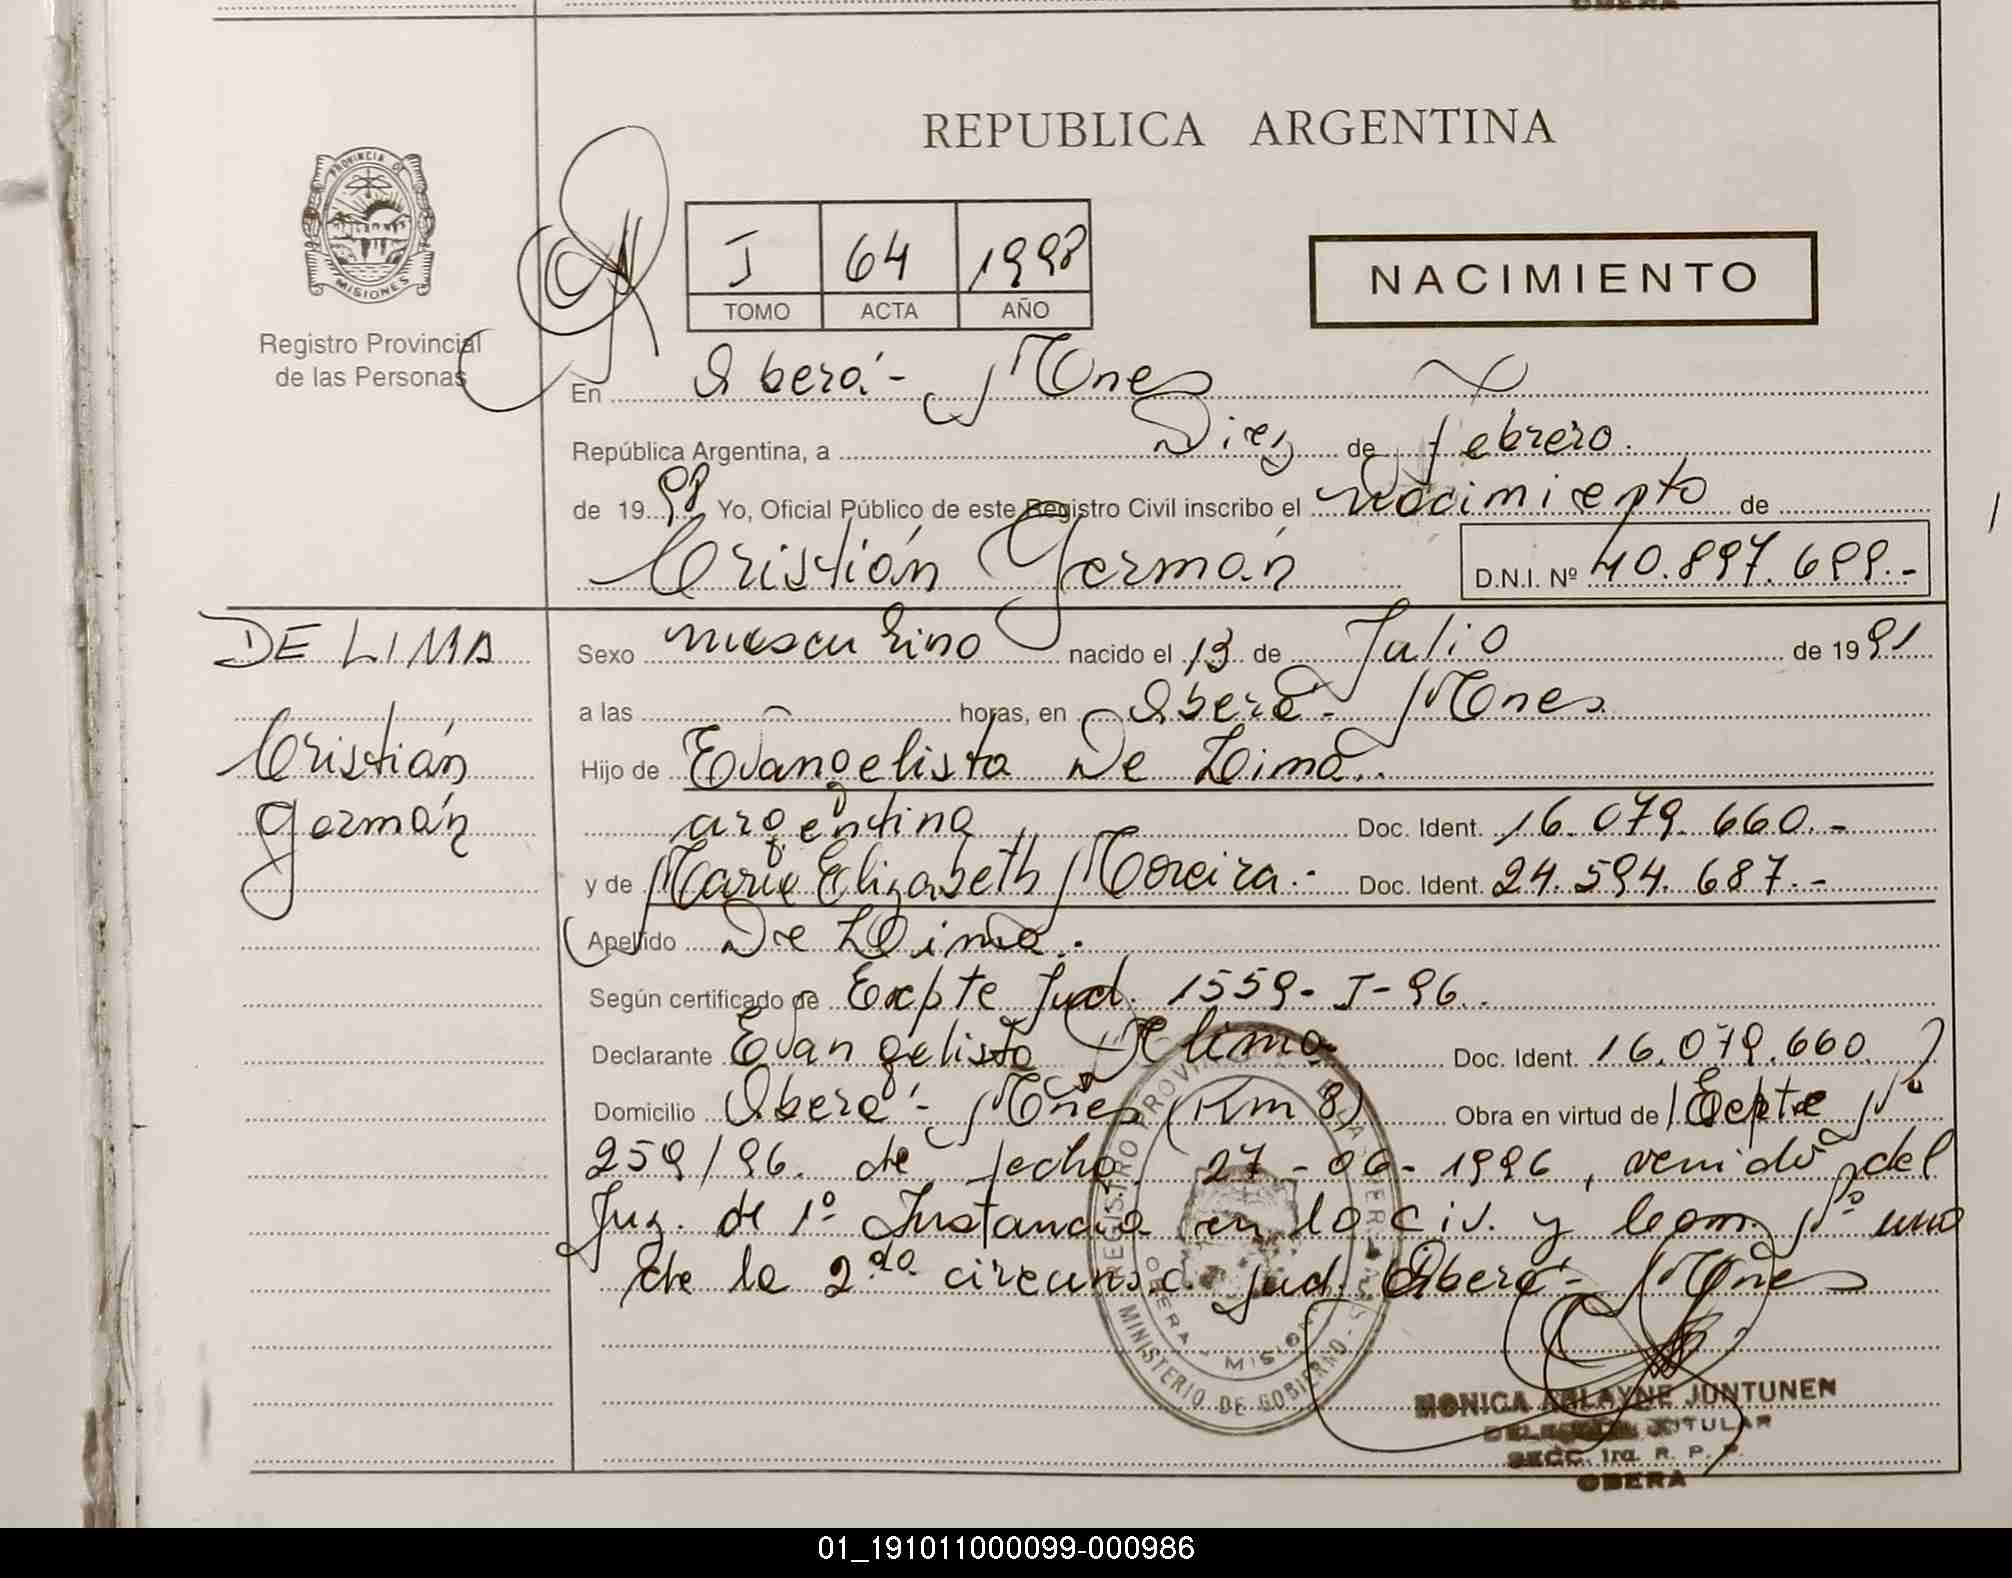 REPUBLICA ARGENTINA
PROVINCIA DE
MISIONES
Registro Provincial
de las Personas
I 64 1998
TOMO ACTA AÑO
NACIMIENTO
En Oberá - Mnes
República Argentina, a Diez de febrero.
de 1998 Yo, Oficial Público de este Registro Civil inscribo el nacimiento de
Cristián Germán D.N.I. Nº 40.897.699.-
DE LIMA
Cristián
Germán
Sexo masculino nacido el 13 de Julio de 1991
a las horas, en Oberá - Mnes
Hijo de Evangelista De Lima.
argentina Doc. Ident. 16.079.660.-
y de Maria Elizabeth Moreira.- Doc. Ident. 24.594.687.-
Apellido De Lima.
Según certificado de Expte Jud. 1559-I-96.
Declarante Evangelista De lima Doc. Ident. 16.079.660
Domicilio Oberá - Mnes (Km 8) Obra en virtud de Expte Nº
259/96. de fecha 27-06-1996, venido del
Juz. de 1º Instancia en lo civ. y Com. Nº uno
de la 2.da circunsc. jud. Oberá - Mnes
REGISTRO PROVINCIAL
MINISTERIO DE GOBIERNO
OBERA - MISIONES
MONICA JUNTUNEN
TITULAR
SECC. 1ra. R. P. P.
OBERA
01_191011000099-000986